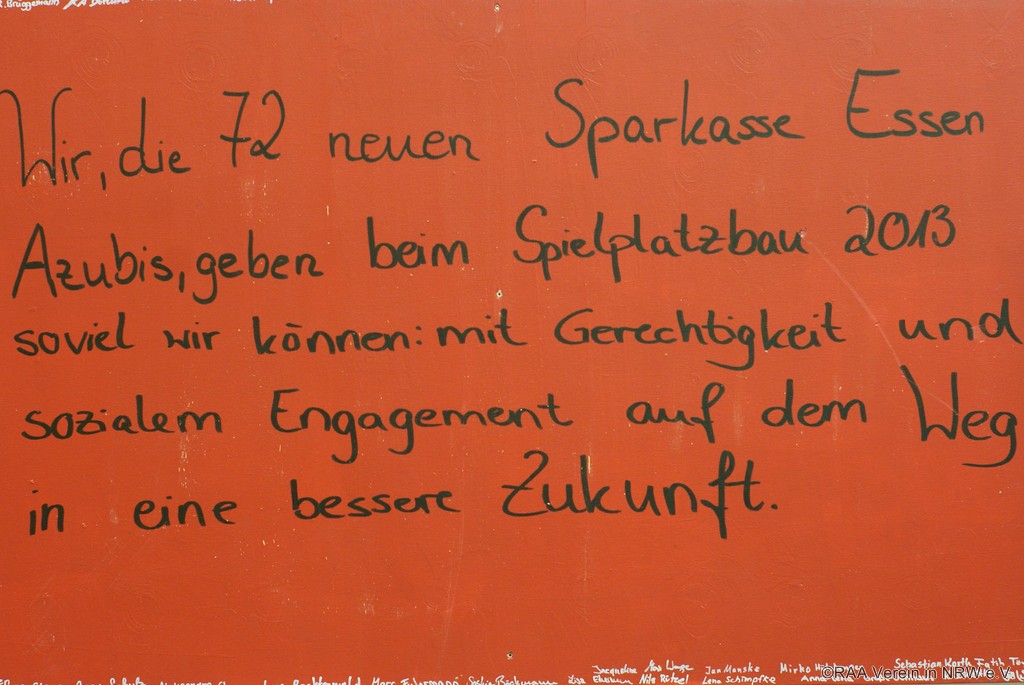 Brüggemann
Wir, die 72 neuen Sparkasse Essen
Azubis, geben beim Spielplatzbau 2013
soviel wir können: mit Gerechtigkeit und
sozialem Engagement auf dem Weg
in eine bessere Zukunft.
Jacqueline Jan Manske Mirko Sebastian Korth Fatih
Lisa Nils Lena Schimpfke
©RAA Verein in NRW e.V.